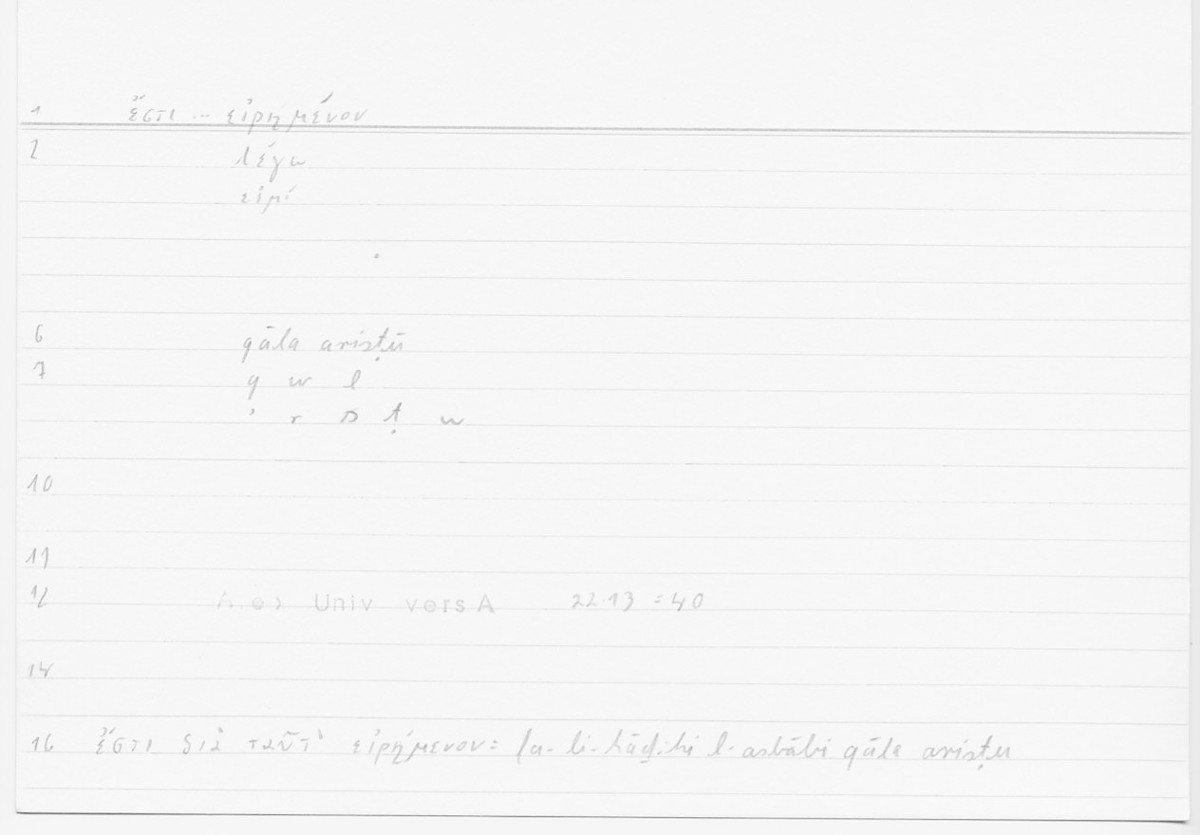 1 ἔστι ... εἰρημένον
2 λέγω
εἰμί
6 qāla arisṭū
7 q w l
ʾ r s ṭ w
10
11
12 Univ vers A 22.13 = 40
14
16 ἔστι διὰ ταῦτ' εἰρήμενον: fa-li-hāḏihi l-asbābi qāla arisṭu